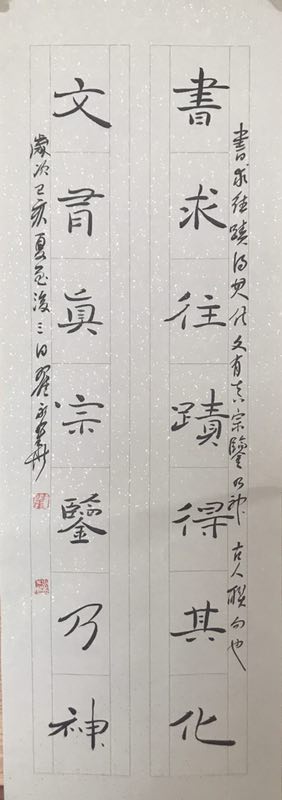 書求往蹟得其化
書求往蹟得其化文有真宗鑒乃神 古人聯句也
文有眞宗鑒乃神
歲次己亥夏至後三日